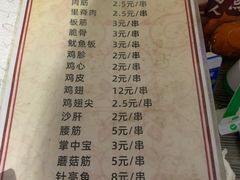 肉筋 2.5元/串
里脊肉 2.5元/串
板筋 3元/串
脆骨 3元/串
鱿鱼板 3元/串
鸡胗 2元/串
鸡心 2元/串
鸡皮 2元/串
鸡翅 12元/串
鸡翅尖 2.5元/串
沙肝 2元/串
腰筋 5元/串
掌中宝 3元/串
蘑菇筋 5元/串
针亮鱼 8元/串